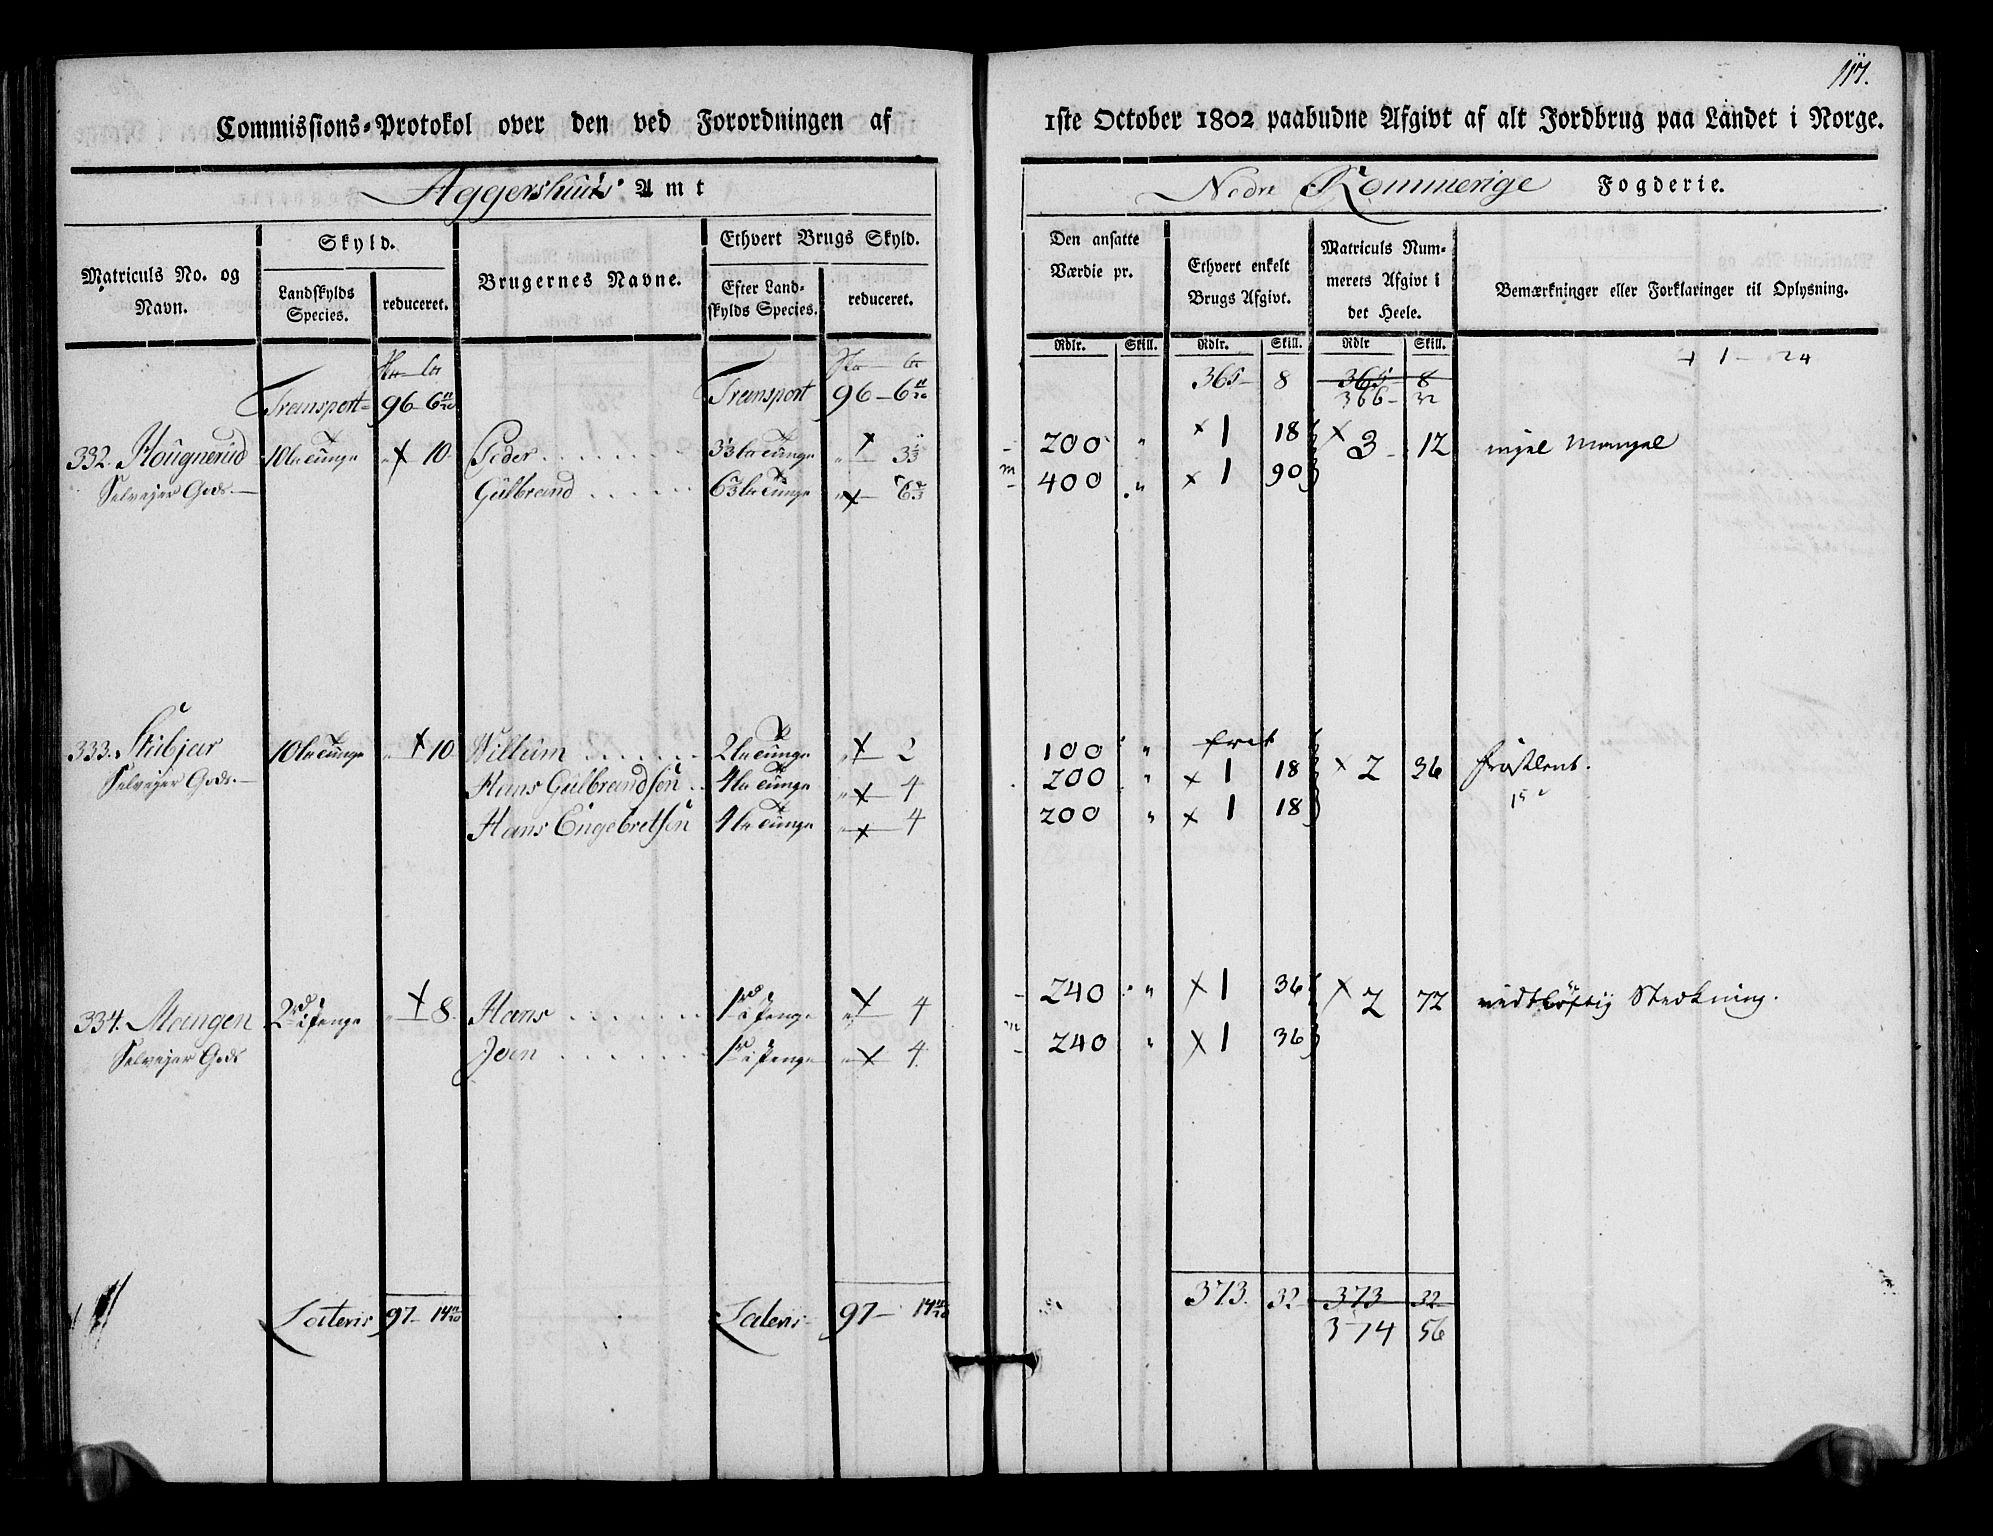 117.
Commissions-Protokol over den ved Forordningen af 1ste October 1802 paabudne Afgivt af alt Jordbrug paa Landet i Norge.
Aggershuus Amt
Nedre Rommerige Fogderie.
Matriculs No. og Navn.
Skyld.
Landskylds Species.
reduceret.
Brugernes Navne.
Ethvert Brugs Skyld.
Efter Landskylds Species.
reduceret.
Den ansatte Værdie pr.
Ethvert enkelt Brugs Afgivt.
Matriculs Nummerets Afgivt i det Heele.
Bemærkninger eller Forklaringer til Oplysning.
Rdlr. Skill. Rdlr. Skill. Rdlr Skill.
+ 1 - 24
Transport 96 - 6 11/20 Transport 96 - 6 11/20 365 - 8 365 - 8
366 - 32
332. Hougnerud 10 tunge × 10 Peder 3⅓ tunge 3⅓ 200 " × 1 18 × 3 12 mangel
Selvejer Gods. Gulbrand 6⅔ tunge × 6⅔ 400 " × 1 90
333. Stubjar 10 tunge × 10 Willum 2 tunge × 2 100 " frit
Selvejer Gods. Hans Gulbrandsen 4 tunge × 4 200 " × 1 18 × 2 36
Hans Engebretsen 4 tunge × 4 200 " × 1 18
334. Mangen 2 i Penge × 8 Hans 1 i Penge × 4 240 " × 1 36 × 2 72 vidtløftig Strekning.
Selvejer Gods Joen 1 i Penge × 4 240 " × 1 36
Lateris 97 - 14 11/20 Lateris 97 - 14 11/20 373. 32 373 32
374 56